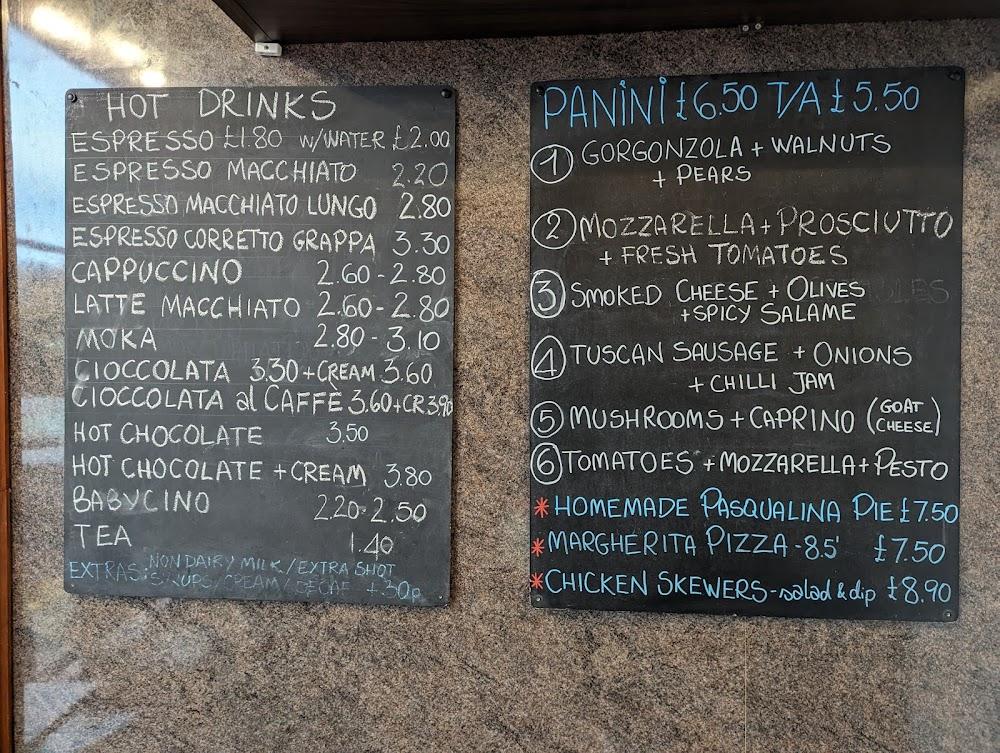 HOT DRINKS
ESPRESSO £1.80 W/WATER £2.00
ESPRESSO MACCHIATO 2.20
ESPRESSO MACCHIATO LUNGO 2.80
ESPRESSO CORRETTO GRAPPA 3.30
CAPPUCCINO 2.60 - 2.80
LATTE MACCHIATO 2.60 - 2.80
MOKA 2.80 - 3.10
CIOCCOLATA 3.30 + CREAM 3.60
CIOCCOLATA al CAFFE 3.60 + CR 3.90
HOT CHOCOLATE 3.50
HOT CHOCOLATE + CREAM 3.80
BABYCINO 2.20 - 2.50
TEA 1.40
EXTRAS: NON DAIRY MILK / EXTRA SHOT
SIRUPS / CREAM / DECAF + 30p
PANINI £6.50 T/A £5.50
1 GORGONZOLA + WALNUTS
+ PEARS
2 MOZZARELLA + PROSCIUTTO
+ FRESH TOMATOES
3 SMOKED CHEESE + OLIVES
+ SPICY SALAME
4 TUSCAN SAUSAGE + ONIONS
+ CHILLI JAM
5 MUSHROOMS + CAPRINO (GOAT CHEESE)
6 TOMATOES + MOZZARELLA + PESTO
* HOMEMADE PASQUALINA PIE £7.50
* MARGHERITA PIZZA - 8.5' £7.50
* CHICKEN SKEWERS - salad & dip £8.90